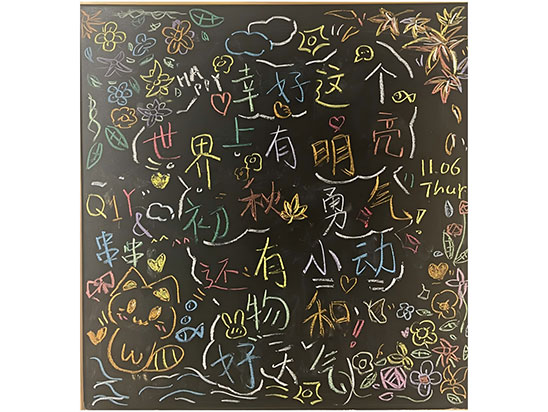 HAPPY
幸好这个
世界上有明亮
初秋勇气
还有小动
物和
好天气
11.06
Thur
QIY
&
串串
W